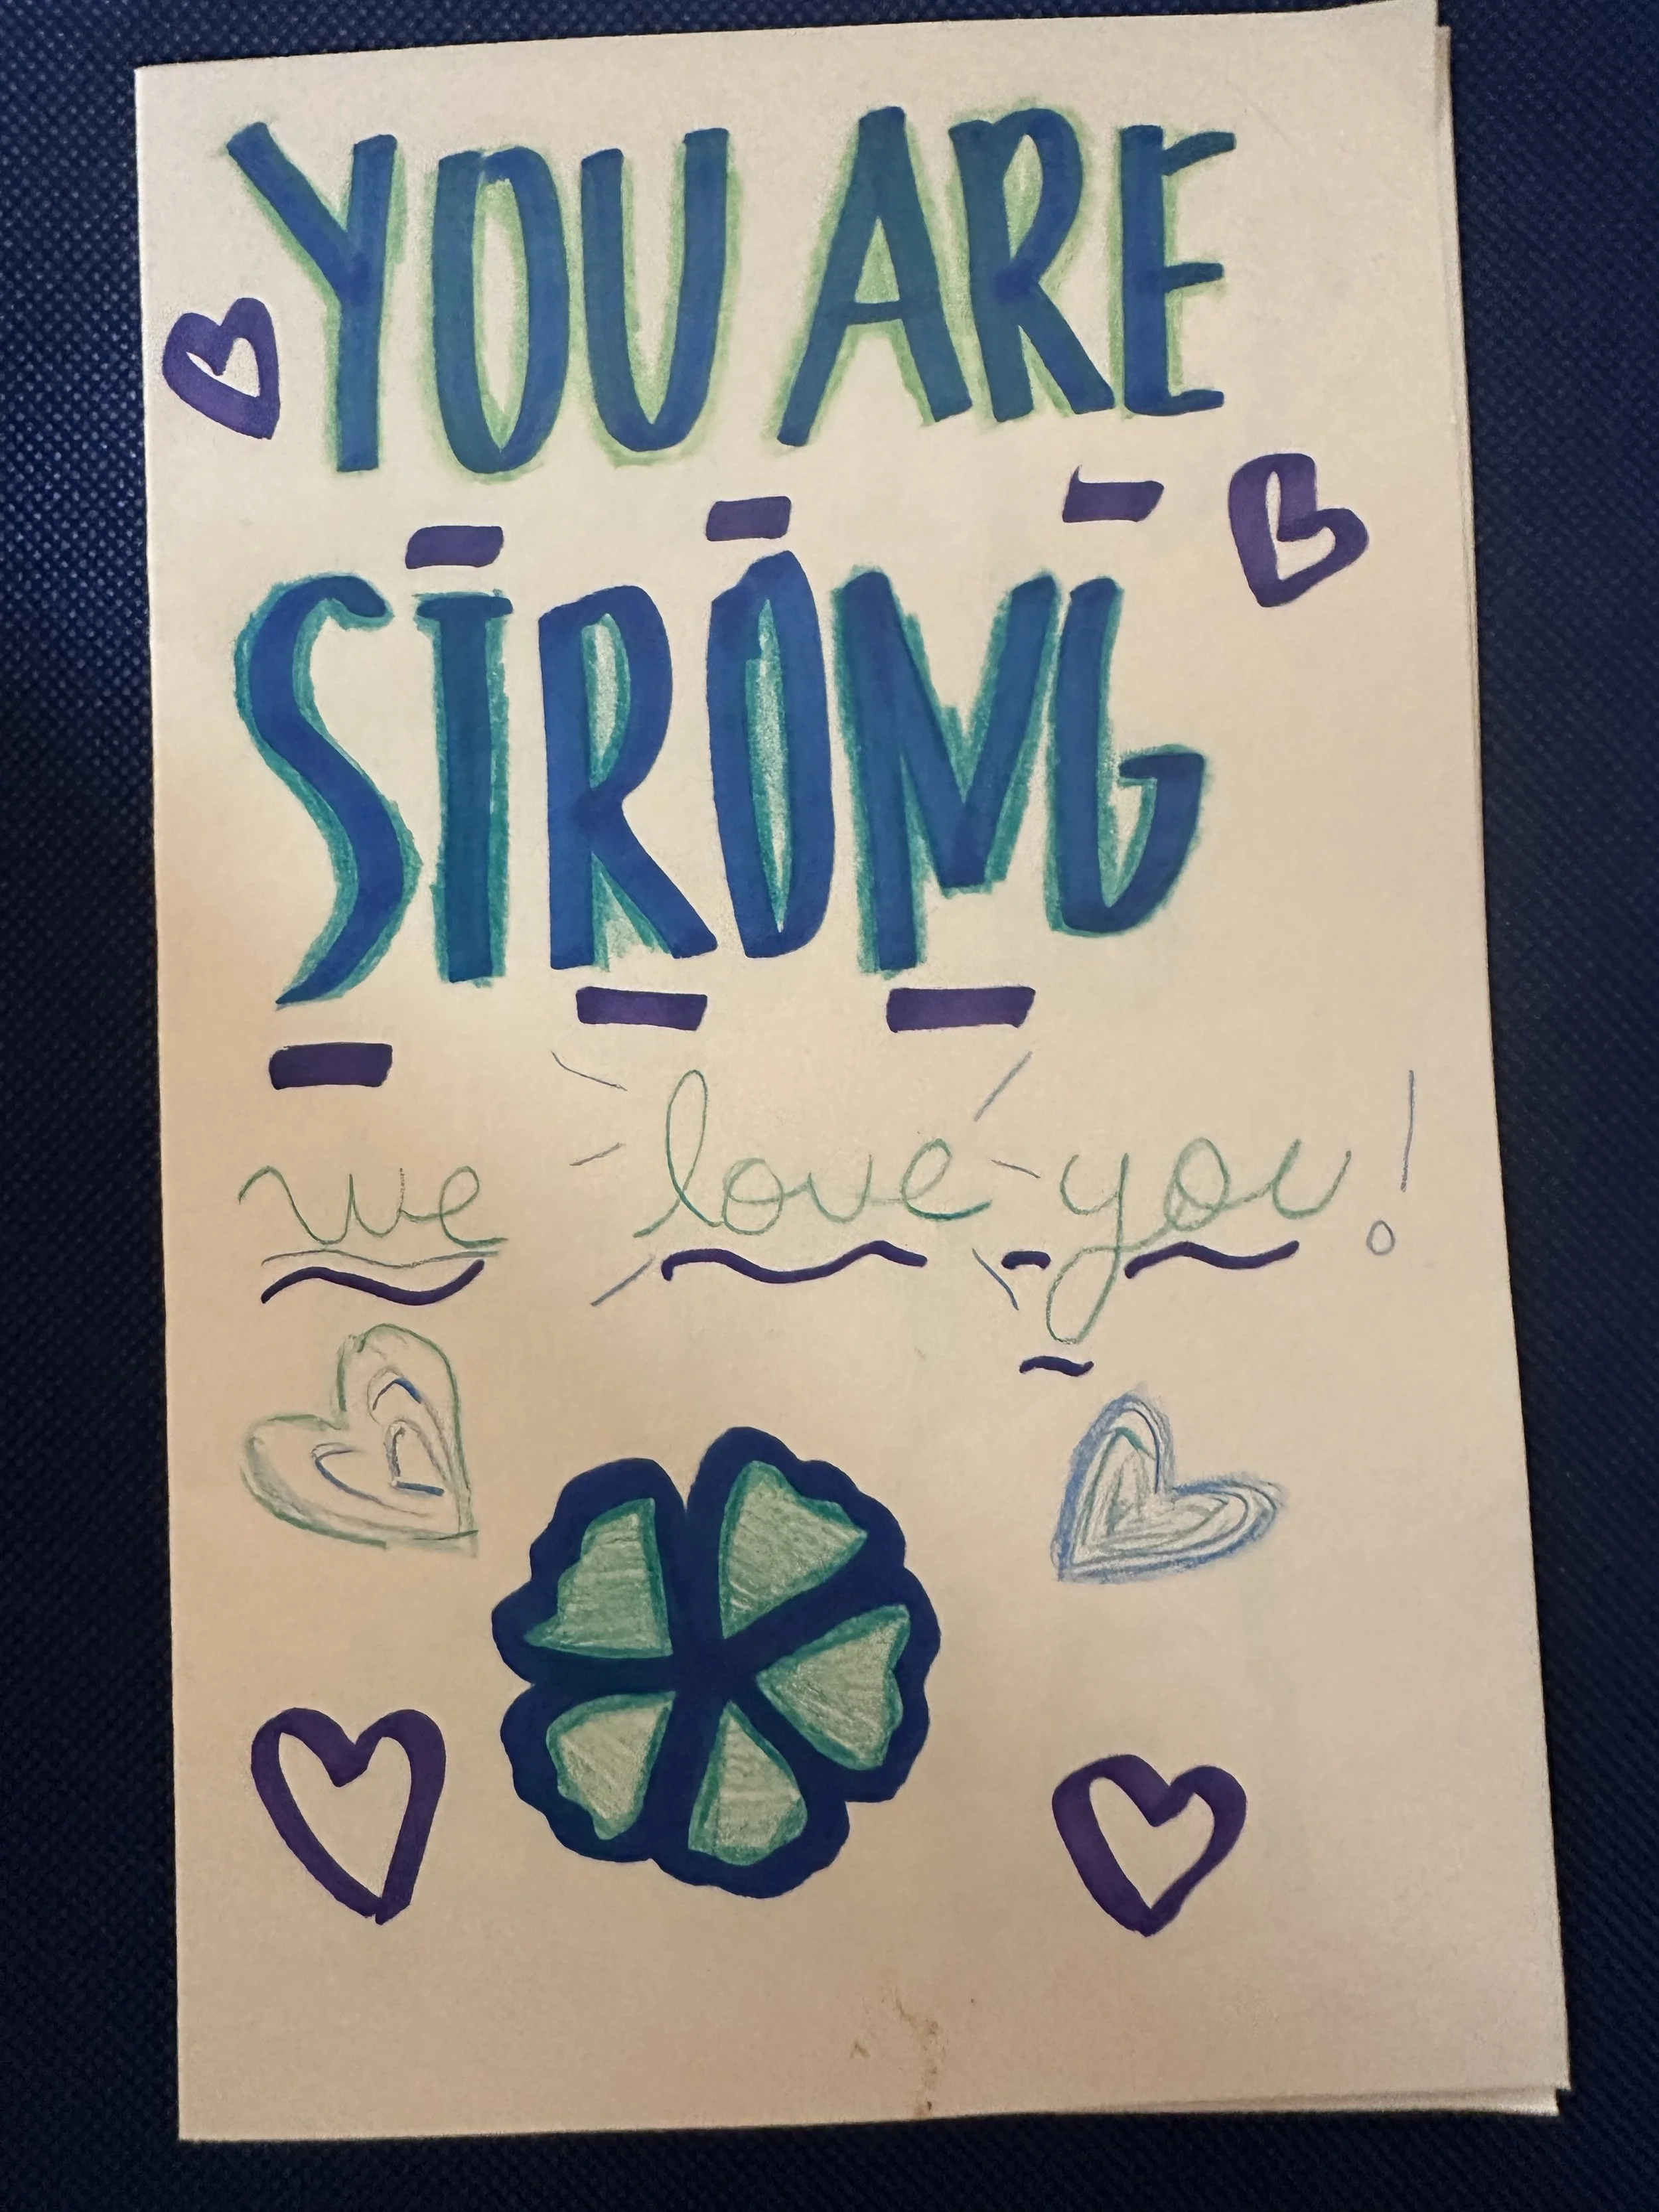 YOU ARE
STRONG
we love you!